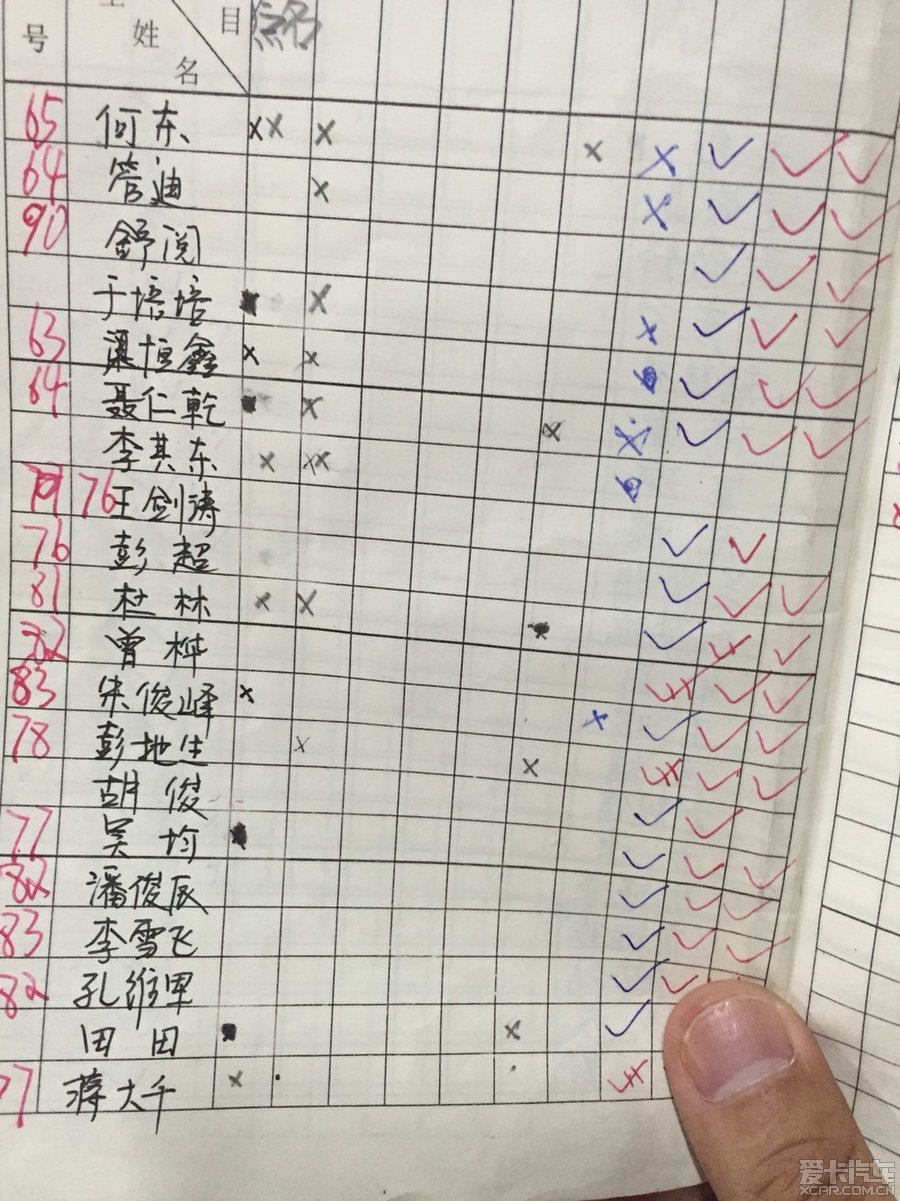 号 姓 名 目
65 何东 ×× × × × ✓ ✓ ✓
64 管迪 × × ✓ ✓ ✓
90 舒阅 ✓ ✓ ✓
于培培 × × ✓ ✓ ✓
63 梁恒鑫 × × ✓ ✓ ✓
64 聂仁乾 × × × ✓ ✓ ✓
李其东 × ××
76 王剑涛 ✓ ✓
76 彭超 ✓ ✓ ✓
81 杜林 × × ✓ ✓
82 曾桦 ✓ ✓
83 朱俊峰 × × ✓ ✓ ✓
78 彭地生 × × ✓ ✓
胡俊 ✓ ✓
77 吴均 ✓ ✓ ✓
82 潘俊辰 ✓ ✓ ✓
83 李雪飞 ✓ ✓ ✓
82 孔维里 ✓ ✓
田田 × ✓
77 蒋大千 ×
爱卡汽车
XCAR.COM.CN